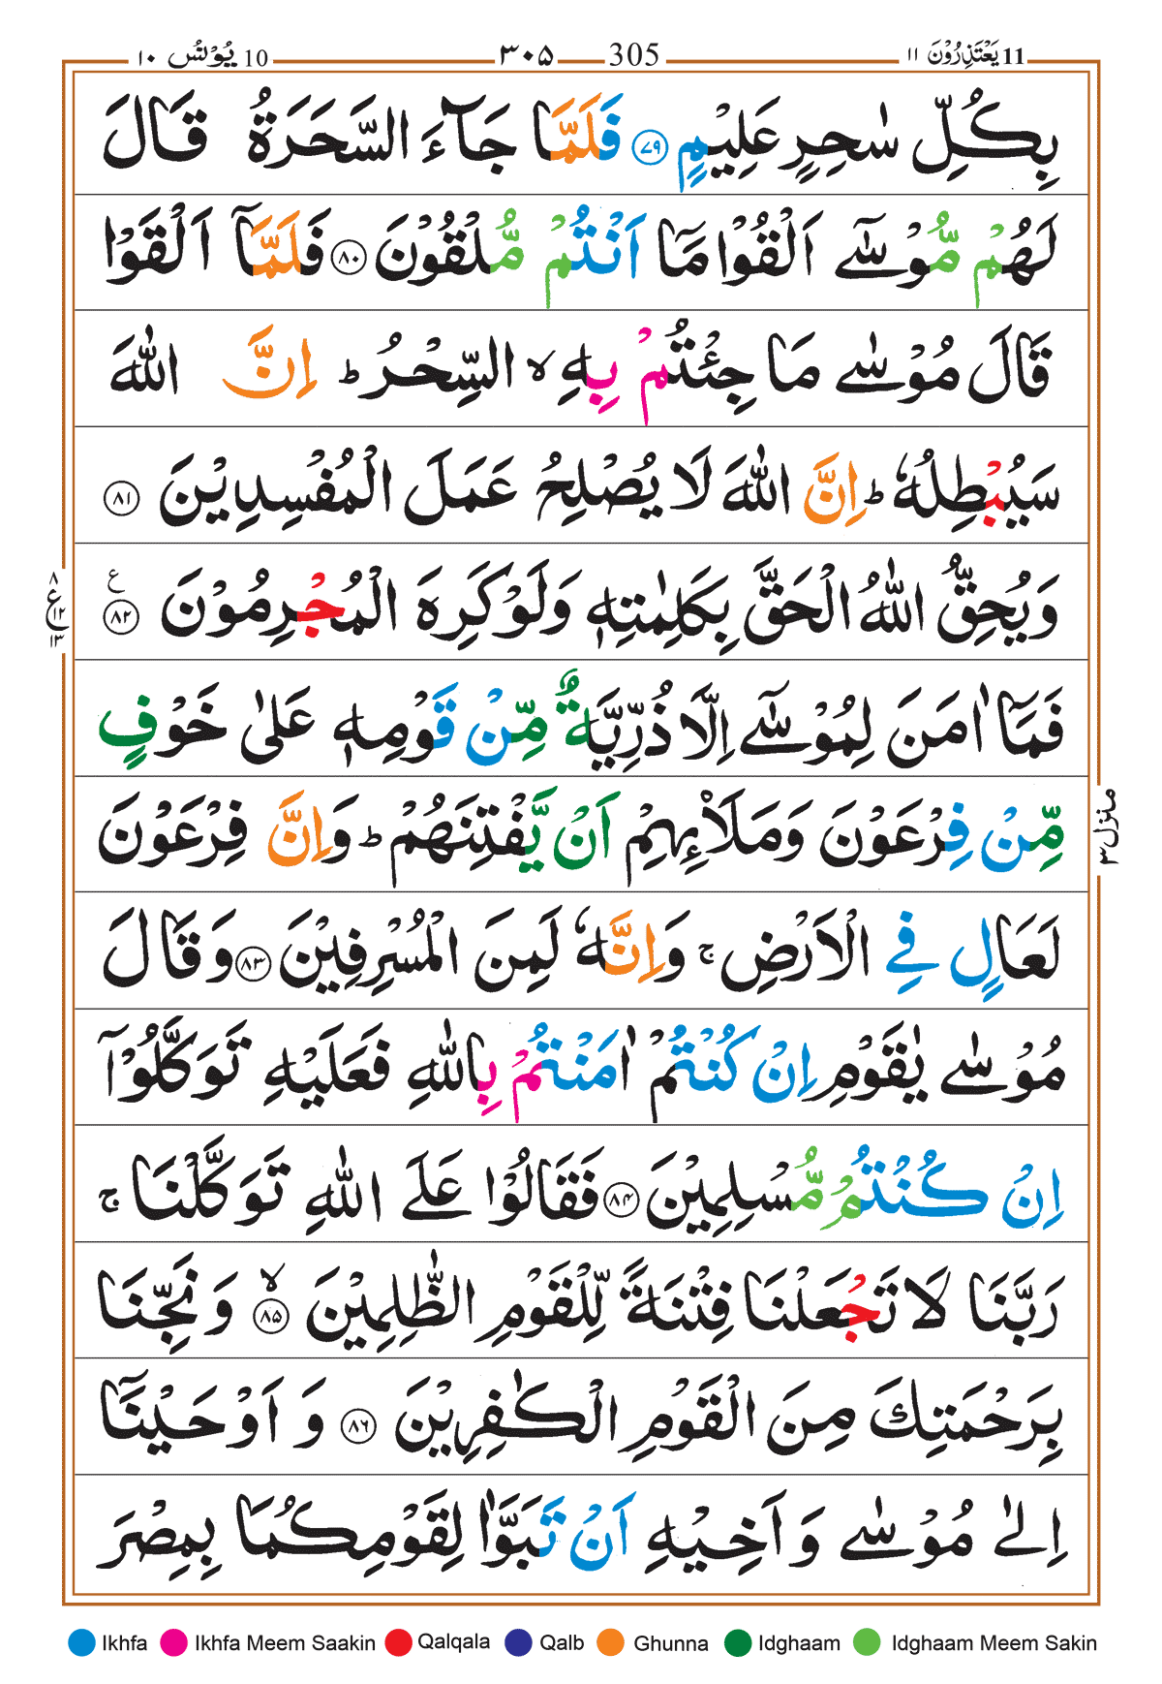 11 يَعْتَذِرُوْنَ ١١ 305 ٣٠٥ 10 يُوْنُسُ ١٠
بِكُلِّ سٰحِرٍ عَلِيْمٍ ﴿٧٩﴾ فَلَمَّا جَآءَ السَّحَرَةُ قَالَ
لَهُمْ مُّوْسٰٓى اَلْقُوْا مَآ اَنْتُمْ مُّلْقُوْنَ ﴿٨٠﴾ فَلَمَّآ اَلْقَوْا
قَالَ مُوْسٰى مَا جِئْتُمْ بِهِ ۙ السِّحْرُ ؕ اِنَّ اللّٰهَ
سَيُبْطِلُهٗ ؕ اِنَّ اللّٰهَ لَا يُصْلِحُ عَمَلَ الْمُفْسِدِيْنَ ﴿٨١﴾
وَيُحِقُّ اللّٰهُ الْحَقَّ بِكَلِمٰتِهٖ وَلَوْ كَرِهَ الْمُجْرِمُوْنَ ﴿٨٢﴾ ع
٨
ع ١٢
١٣
فَمَآ اٰمَنَ لِمُوْسٰٓى اِلَّا ذُرِّيَّةٌ مِّنْ قَوْمِهٖ عَلٰى خَوْفٍ
مِّنْ فِرْعَوْنَ وَمَلَا۟ئِهِمْ اَنْ يَّفْتِنَهُمْ ؕ وَاِنَّ فِرْعَوْنَ
منزل ٣
لَعَالٍ فِى الْاَرْضِ ۚ وَاِنَّهٗ لَمِنَ الْمُسْرِفِيْنَ ﴿٨٣﴾ وَقَالَ
مُوْسٰى يٰقَوْمِ اِنْ كُنْتُمْ اٰمَنْتُمْ بِاللّٰهِ فَعَلَيْهِ تَوَكَّلُوْٓا
اِنْ كُنْتُمْ مُّسْلِمِيْنَ ﴿٨٤﴾ فَقَالُوْا عَلَى اللّٰهِ تَوَكَّلْنَا ۚ
رَبَّنَا لَا تَجْعَلْنَا فِتْنَةً لِّلْقَوْمِ الظّٰلِمِيْنَ ۙ﴿٨٥﴾ وَنَجِّنَا
بِرَحْمَتِكَ مِنَ الْقَوْمِ الْكٰفِرِيْنَ ﴿٨٦﴾ وَاَوْحَيْنَآ
اِلٰى مُوْسٰى وَاَخِيْهِ اَنْ تَبَوَّاٰ لِقَوْمِكُمَا بِمِصْرَ
Ikhfa Ikhfa Meem Saakin Qalqala Qalb Ghunna Idghaam Idghaam Meem Sakin